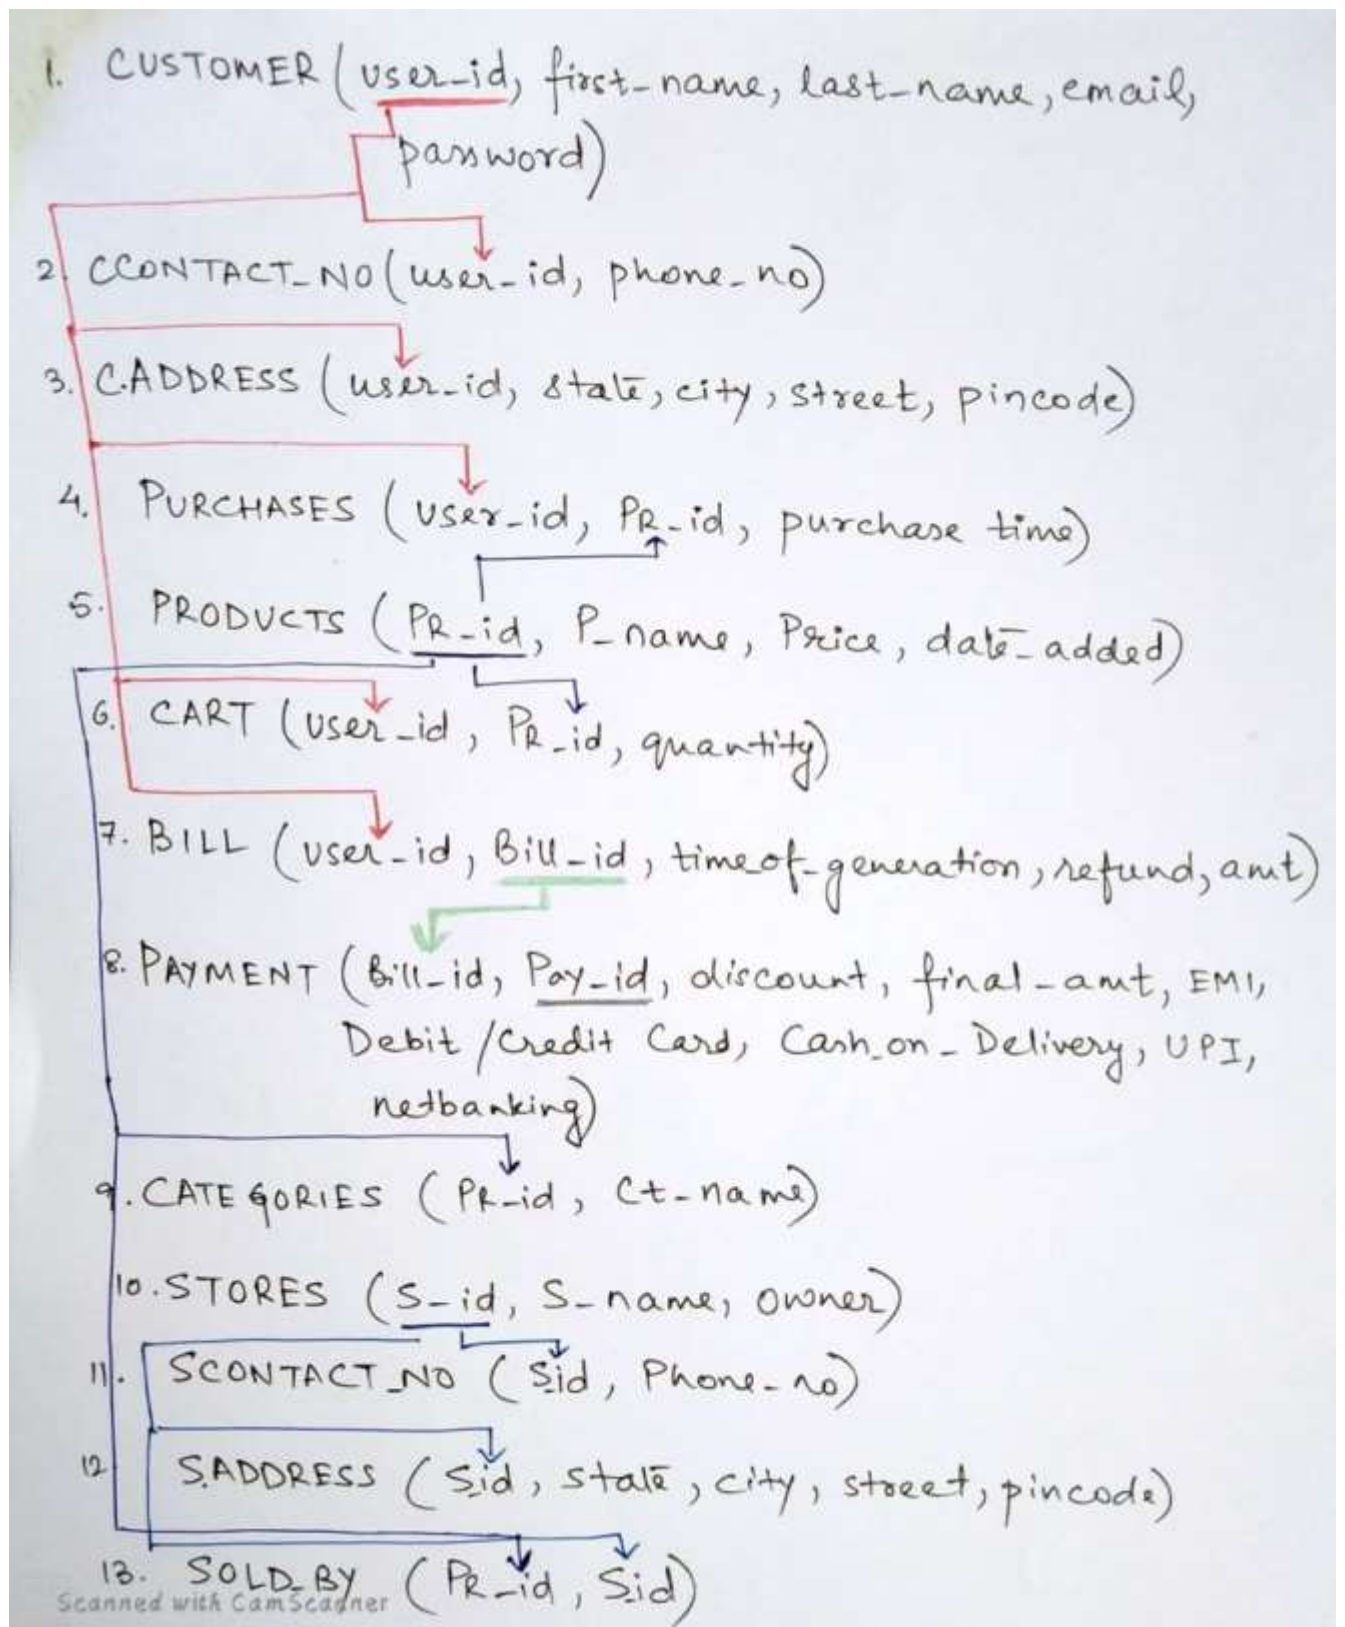 1. CUSTOMER (user_id, first_name, last_name, email,
password)
2. CCONTACT_NO (user_id, phone_no)
3. C.ADDRESS (user_id, state, city, street, pincode)
4. PURCHASES (user_id, PR_id, purchase time)
5. PRODUCTS (PR_id, P_name, Price, date_added)
6. CART (user_id, PR_id, quantity)
7. BILL (user_id, Bill_id, time_of_generation, refund, amt)
8. PAYMENT (Bill_id, Pay_id, discount, final_amt, EMI,
Debit/Credit Card, Cash_on_Delivery, UPI,
netbanking)
9. CATEGORIES (PR_id, Ct_name)
10. STORES (S_id, S_name, owner)
11. SCONTACT_NO (S_id, Phone_no)
12 S.ADDRESS (S_id, state, city, street, pincode)
13. SOLD_BY (PR_id, S_id)
Scanned with CamScanner